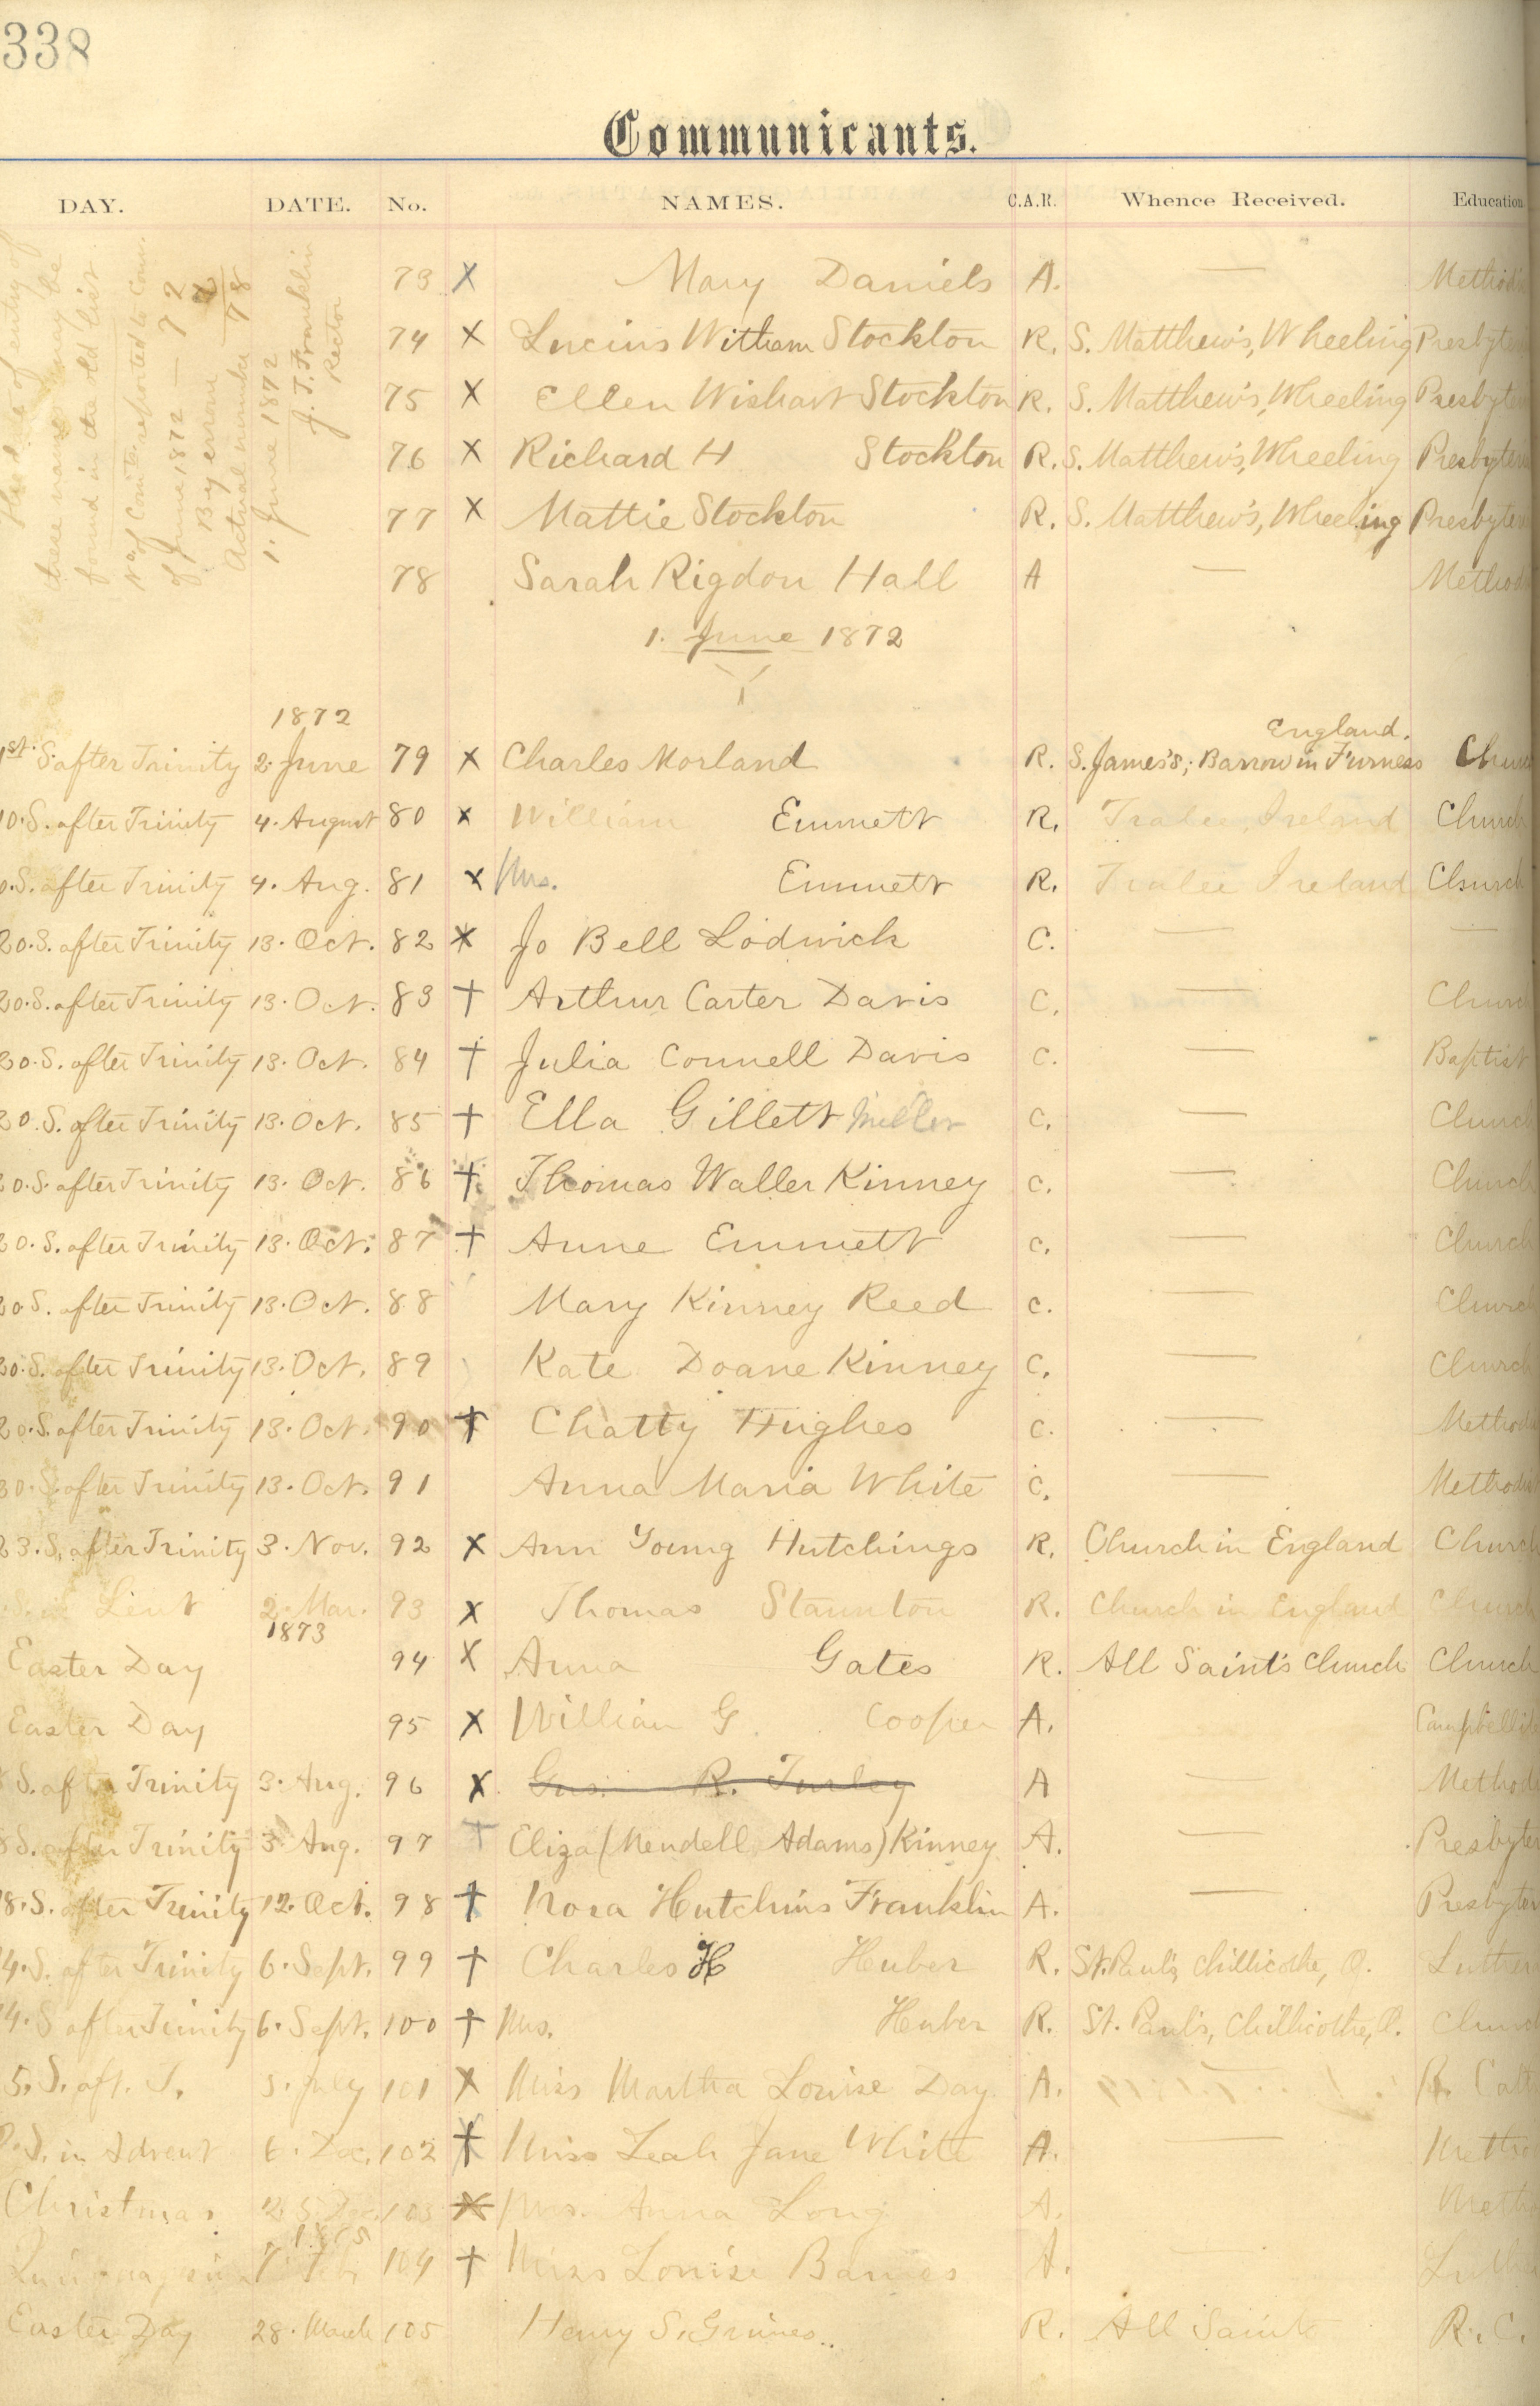 338
Communicants.
DAY. DATE. No. NAMES. C.A.R. Whence Received. Education
entry of
these names may be
found in the old list
No. of Com'ts. reported to Conv.
of June 1872 — 72
By error
Actual number 78
1. June 1872
J. T. Franklin
Rector
73 X Mary Daniels A. —
74 X Lucius Witham Stockton R. S. Matthew's, Wheeling
75 X Ellen Wishart Stockton R. S. Matthew's, Wheeling
76 X Richard H Stockton R. S. Matthew's, Wheeling
77 X Mattie Stockton R. S. Matthew's, Wheeling
78 Sarah Rigdon Hall A —
1. June 1872
1872
1st. S. after Trinity 2. June 79 X Charles Morland R. S. James's; Barrow in Furness England.
10. S. after Trinity 4. August 80 X William Emmett R. Tralee, Ireland Church
0. S. after Trinity 4. Aug. 81 X Mrs. Emmett R. Tralee Ireland Church
20. S. after Trinity 13. Oct. 82 X Jo Bell Lodwick C. — —
20. S. after Trinity 13. Oct. 83 † Arthur Carter Davis C. — Church
20. S. after Trinity 13. Oct. 84 † Julia Connell Davis C. — Baptist
20. S. after Trinity 13. Oct. 85 † Ella Gillett Miller C. — Church
20. S. after Trinity 13. Oct. 86 † Thomas Waller Kinney C. — Church
20. S. after Trinity 13. Oct. 87 † Anne Emmett C. — Church
20. S. after Trinity 13. Oct. 88 Mary Kinney Reed C. — Church
20. S. after Trinity 13. Oct. 89 Kate Doane Kinney C. — Church
20. S. after Trinity 13. Oct. 90 † Chatty Hughes C. —
20. S. after Trinity 13. Oct. 91 Anna Maria White C. —
23. S. after Trinity 3. Nov. 92 X Ann Young Hutchings R. Church in England Church
Lent 2. Mar. 1873 93 X Thomas Staunton R. Church in England Church
Easter Day 94 X Anna Gates R. All Saint's Church Church
Easter Day 95 X William G. Cooper A.
S. after Trinity 3. Aug. 96 X Gus. R. Turley A —
8 S. after Trinity 3 Aug. 97 † Eliza (Mendell Adams) Kinney A. —
18. S. after Trinity 12. Oct. 98 † Nora Hutchins Franklin A. —
4. S. after Trinity 6. Sept. 99 † Charles H Huber R. St. Paul's, Chillicothe, O.
4. S after Trinity 6. Sept. 100 † Mrs. Huber R. St. Paul's, Chillicothe, O. Church
5. S. aft. T. 5. July 101 X Miss Martha Louise Day A.
S. in Advent 6. Dec. 102 † Miss Leah Jane White A. —
Christmas 25 Dec. 103 X Mrs. Anna Long A.
1875
7. Feb. 104 † Miss Louise Barnes A. —
Easter Day 28. March 105 Henry S. Grimes R. All Saints R. C.